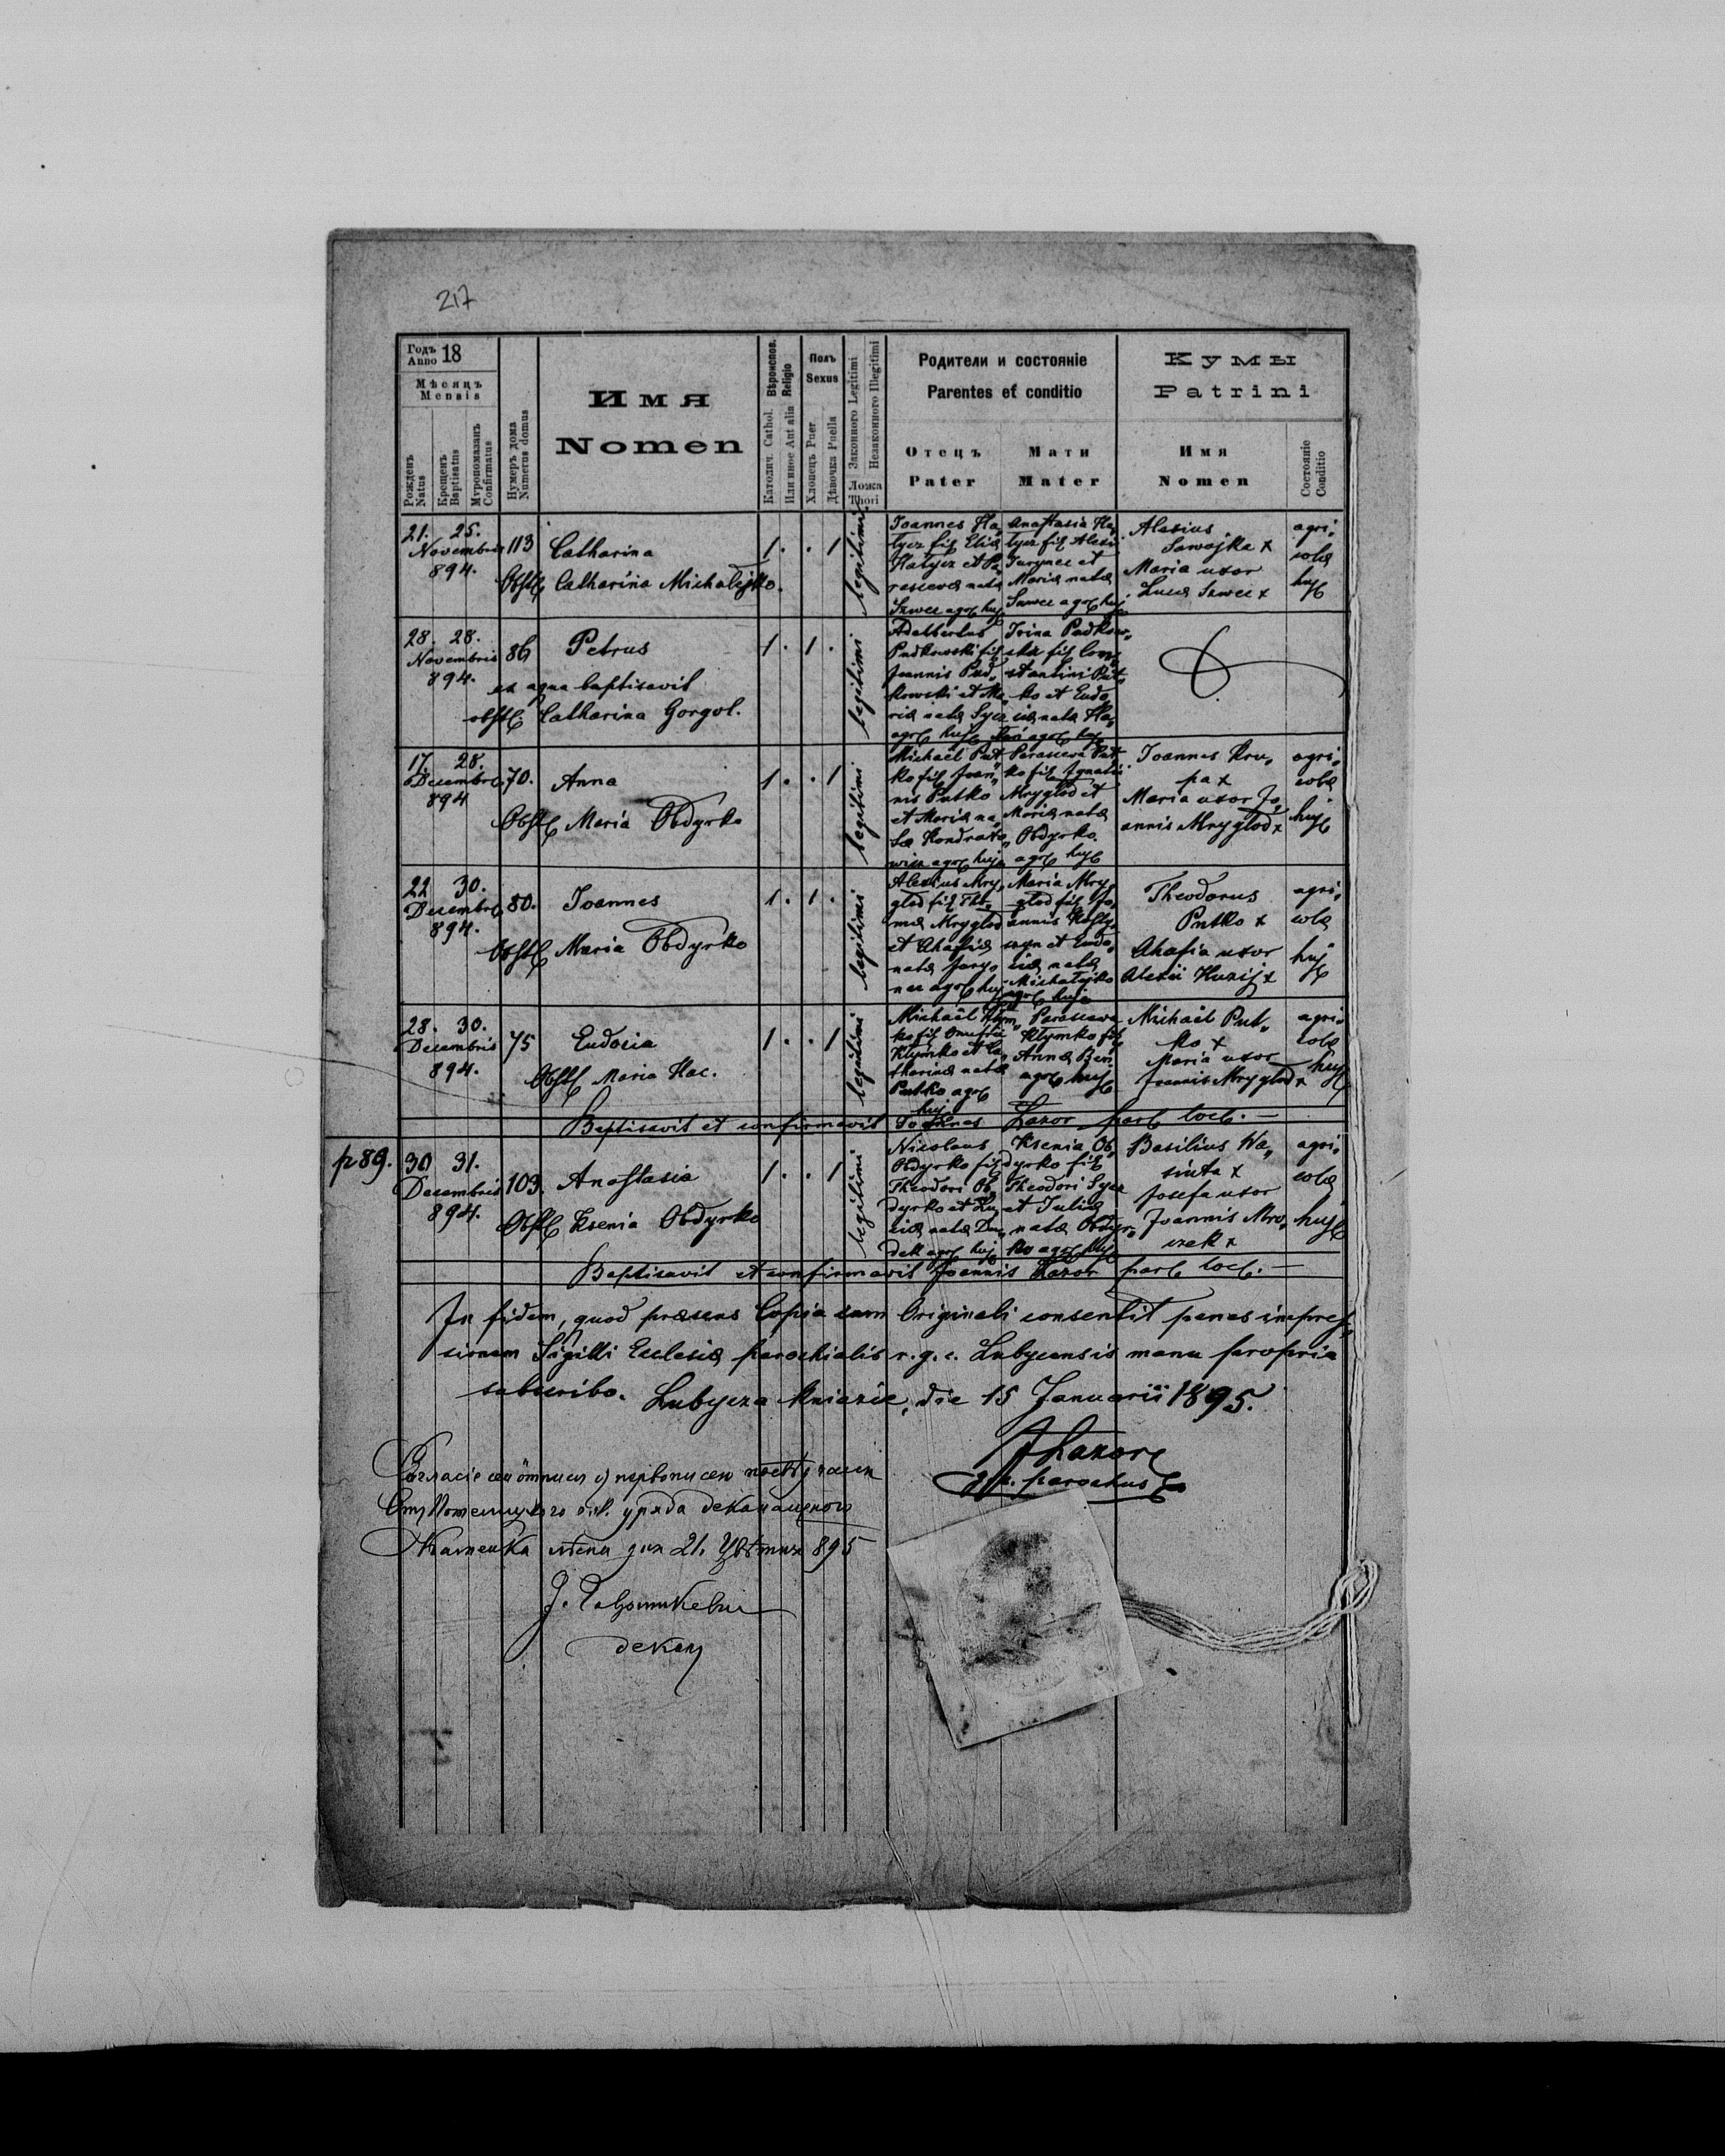 217
Годъ Anno 18
Мѣсяцъ
Mensis
Рожденъ Natus
Крещенъ Baptisatus
Мѵропомазанъ Confirmatus
Нумеръ дома Numerus domus
Имя
Nomen
Вѣроиспов. Religio
Католич. Cathol.
Или иное Aut alia
Полъ
Sexus
Хлопець Puer
Дѣвочка Puella
Законного Legitimi
Незаконного Illegitimi
Ложа
Thori
Родители и состояніе
Parentes et conditio
Отецъ
Pater
Мати
Mater
Кумы
Patrini
Имя
Nomen
Состояніе
Conditio
21. 25.
Novembris
894.
113
Catharina
Obst. Catharina Michalejko.
1 . . 1
legitimi
Joannes Ha„
tycz fil. Eliæ
Hatycz et Pa„
rascevæ natæ
Szwec agr. huj.
Anastasia Ha„
tycz fil. Alexii
Jarynec et
Mariæ natæ
Szwec agr. huj.
Alexius
Sawojka x
Maria uxor
Lucæ Szwec x
agri„
colæ
huj.
28. 28.
Novembris
894.
86
Petrus
ex aqua baptisavit
obst. Catharina Gorgol.
1 . 1 .
legitimi
Adalbertus
Pudkowski fil.
Joannis Pud„
kowski et Ma„
riæ natæ Sycz
agr. huj.
Irina Pudkow„
ska fil. Con„
stantini Put„
ko et Eudo„
ciæ natæ Ha„
agr. huj.
17. 28.
Decembris
894
70.
Anna
Obst. Maria Obdyrko
1 . . 1
legitimi
Michaël Put„
ko fil. Joan„
nis Putko
et Mariæ na„
tæ Kondrato„
wicz agr. huj.
Parasceva Put„
ko fil. Ignatii
Mryglod et
Mariæ natæ
Obdyrko.
agr. huj.
Joannes Kru„
pa x
Maria uxor Jo„
annis Mryglod x
agri„
colæ
huj.
22 30.
Decembris
894.
80.
Joannes
Obst. Maria Obdyrko
1 . 1 .
legitimi
Alexius Mry„
glod fil. Tho„
mæ Mryglod
et Ahafiæ
natæ Jary„
nec agr. huj.
Maria Mry„
glod fil. Jo„
annis
et Eudo„
ciæ natæ
Michalejko
agr. huj.
Theodorus
Putko x
Ahafia uxor
Alexii Huzij x
agri„
colæ
huj.
28. 30.
Decembris
894.
75
Eudocia
Obst. Maria Hac.
1 . . 1
legitimi
Michaël Klym„
ko fil. Onuffrii
Klymko et Ca„
tharinæ natæ
Putko agr.
huj.
Parasceva
Klymko fil.
Annæ Ben
agr. huj.
Michaël Put„
ko x
Maria uxor
Joannis Mryglod x
agri„
colæ
huj.
Baptisavit et confirmavit Joannes Lazor par. loc. —
p 89.
30 31.
Decembris
894.
103.
Anastasia
Obst. Ksenia Obdyrko
1 . . 1
legitimi
Nicolaus
Obdyrko fil.
Theodori Ob„
dyrko et Lu„
ciæ natæ Du„
dek agr. huj.
Ksenia Ob„
dyrko fil.
Theodori Sycz
et Juliæ
natæ Obdyr„
ko agr. huj.
Basilius Wa„
siuta x
Josefa uxor
Joannis Mro„
czek x
agri„
colæ
huj.
Baptisavit et confirmavit Joannis Lazor par. loc. —
In fidem, quod præsens Copia cum Originali consentit penes impres„
sionem Sigilli Ecclesiæ parochialis r. g. c. Lubycensis manu propria
subscribo. Lubycza kniazie, die 15 Januarii 1895.
JLazor
parochus
уряда деканального
Каменка дня 21. Цвѣтня 895
декан